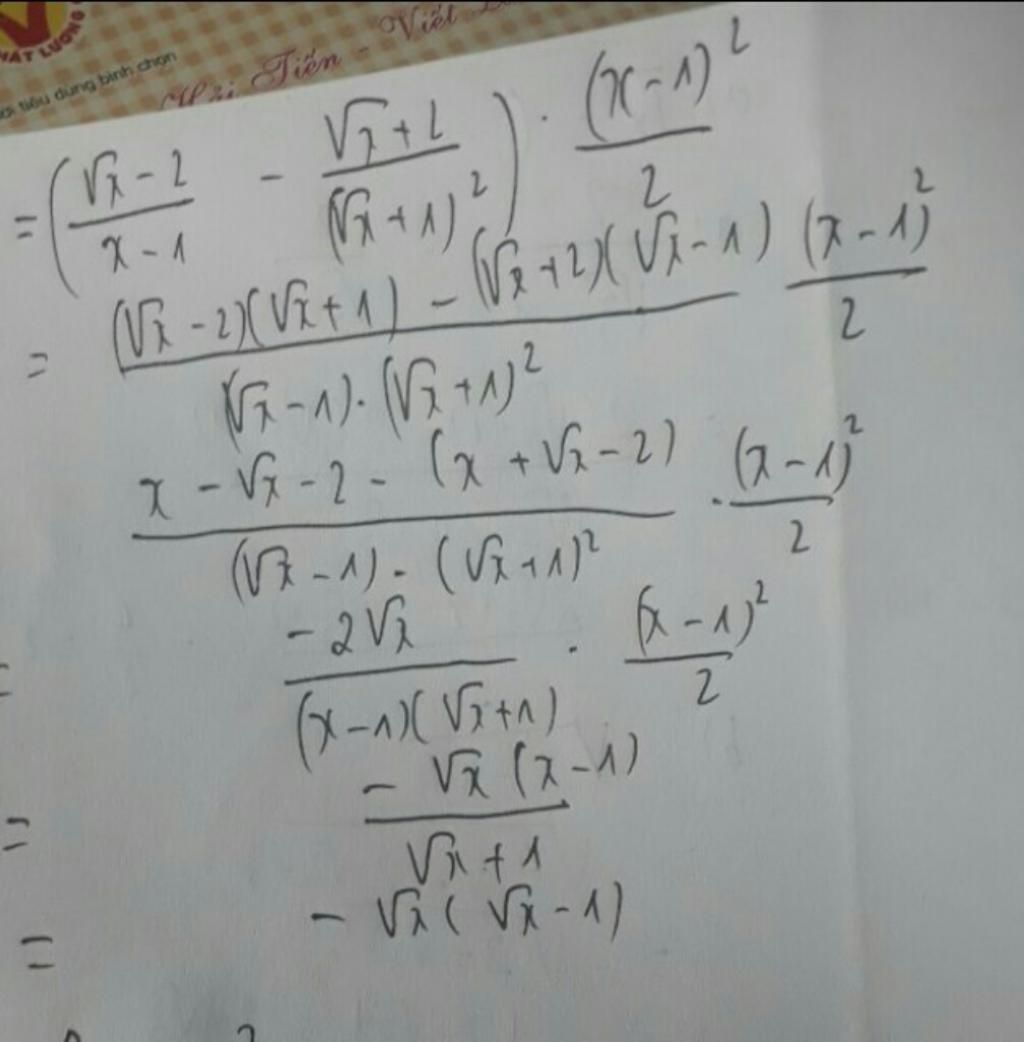 Hải Tiến - Viết
ẤT LƯỢNG
tiêu dùng bình chọn
= ( (√x - 2)/(x - 1) - (√x + 2)/(√x + 1)² ) . (x - 1)²/2
= ((√x - 2)(√x + 1) - (√x + 2)(√x - 1))/((√x - 1).(√x + 1)²) (x - 1)²/2
(x - √x - 2 - (x + √x - 2))/((√x - 1) - (√x + 1)²) . (x - 1)²/2
= (- 2√x)/((x - 1)(√x + 1)) . (x - 1)²/2
= (- √x (x - 1))/(√x + 1)
= - √x ( √x - 1)